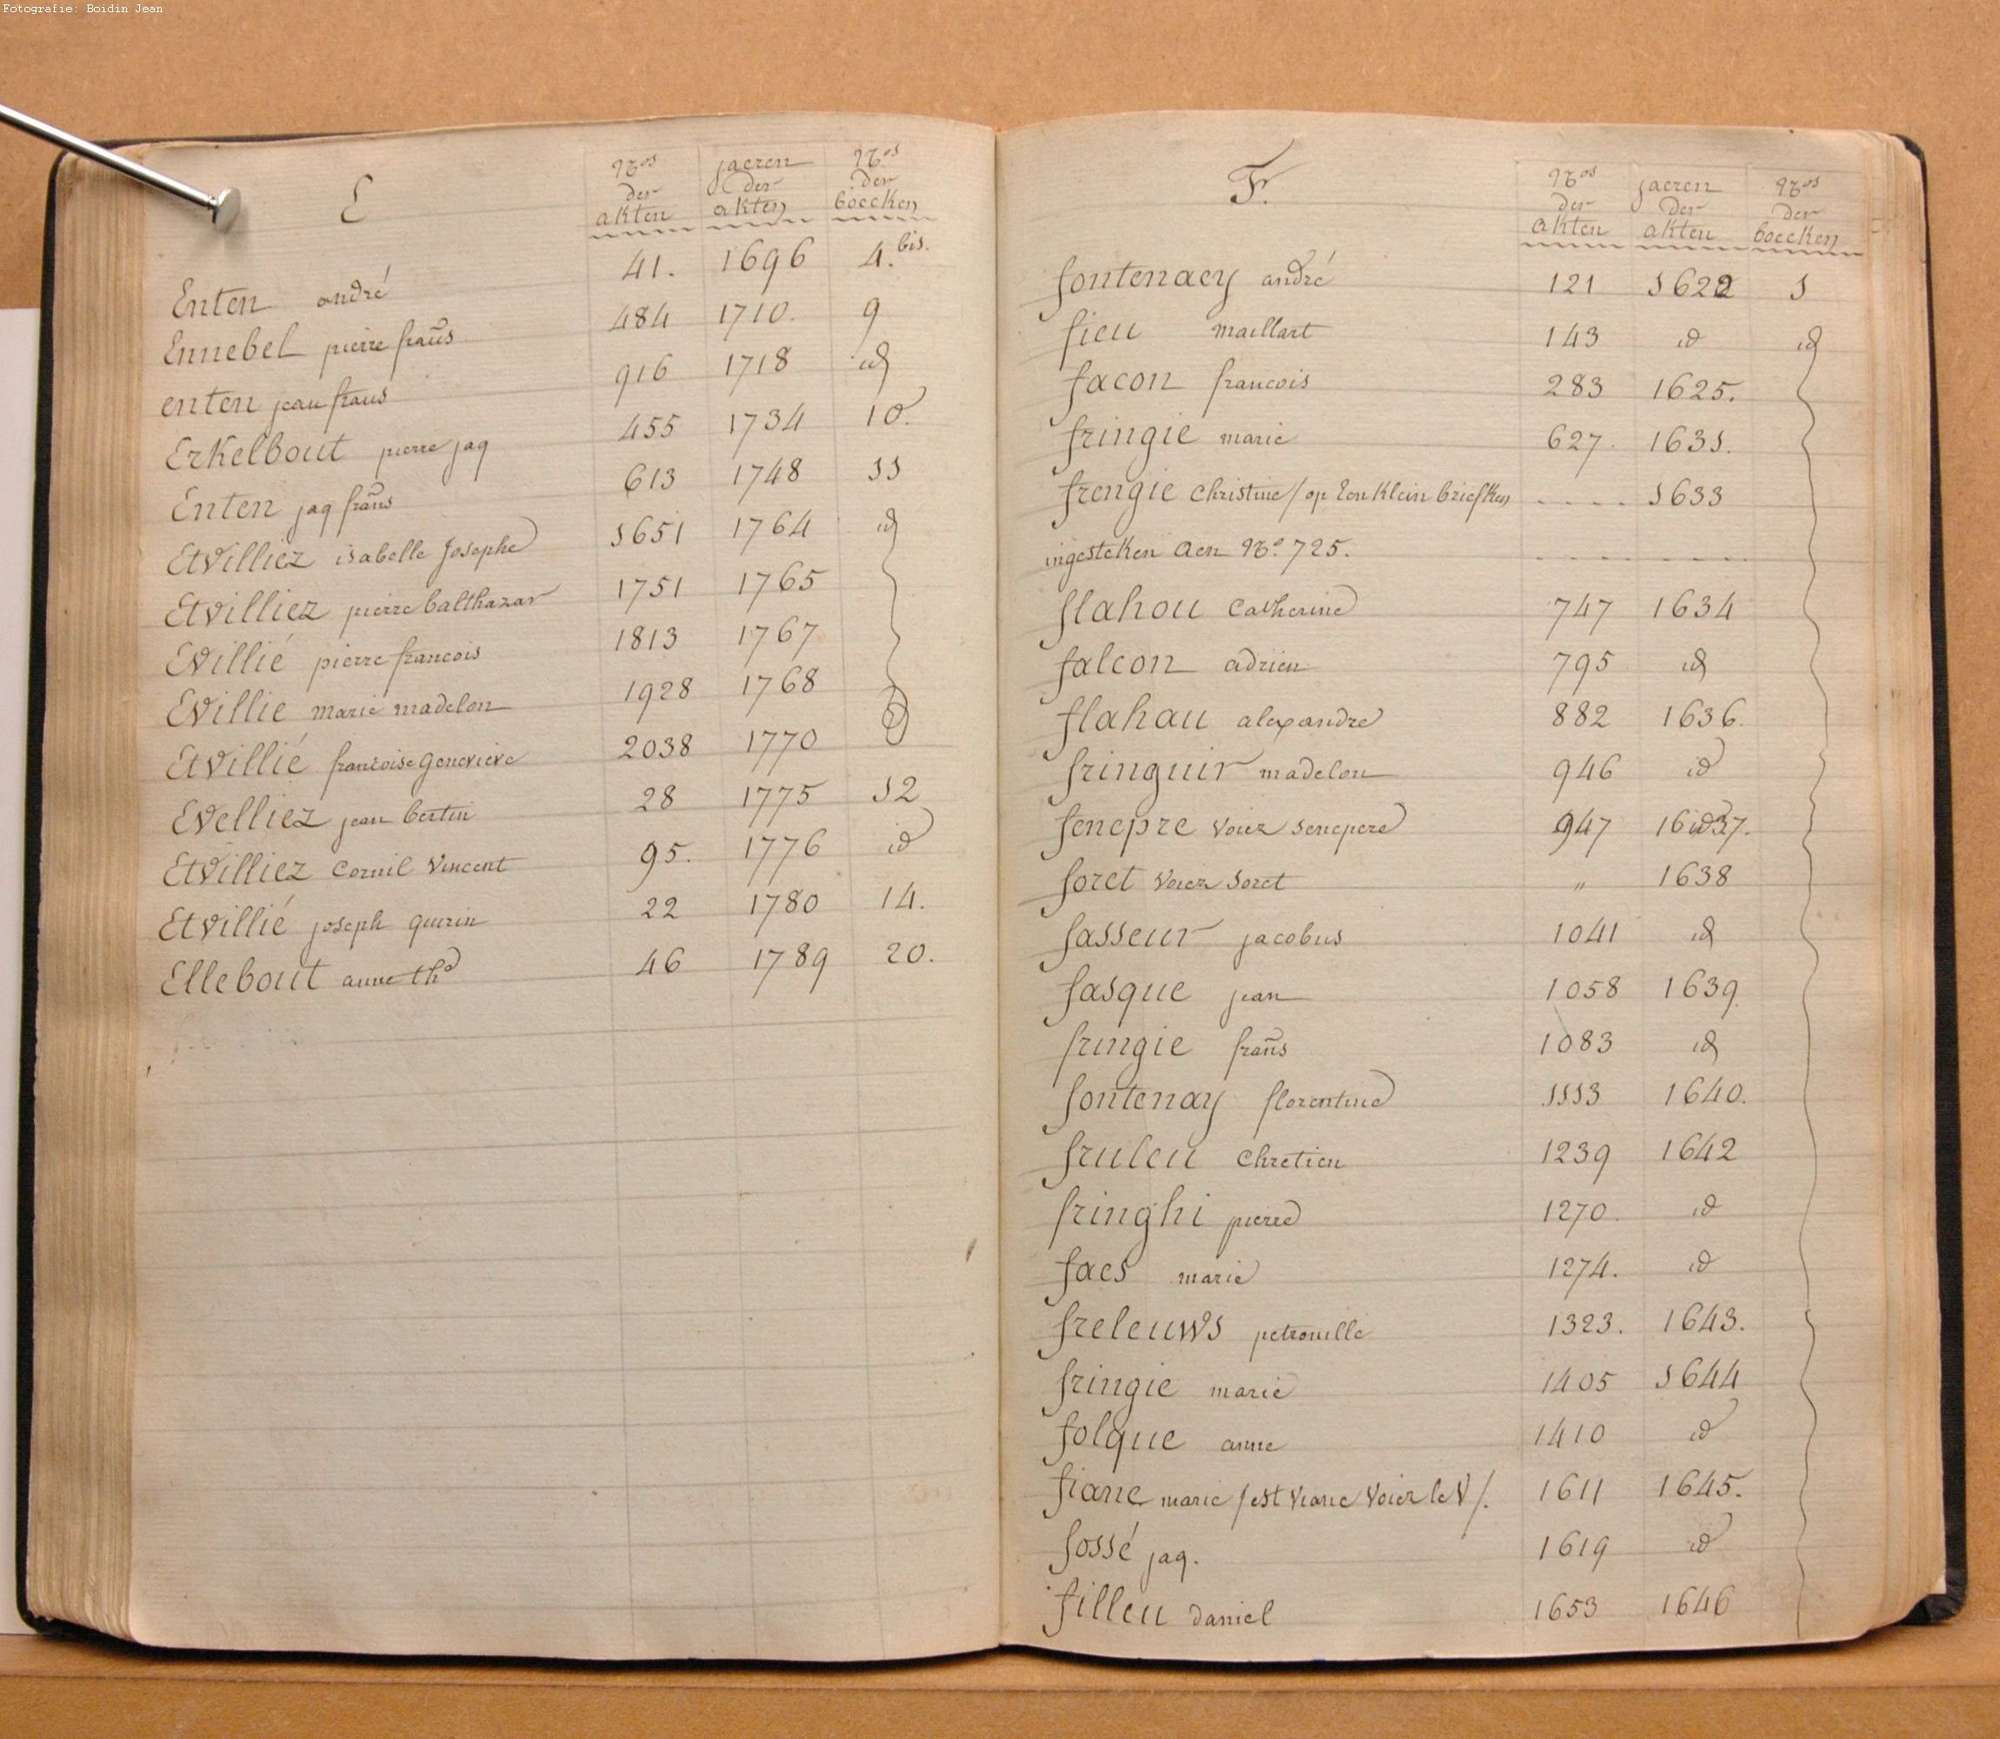 Fotografie: Boidin Jean
E
Nos der akten jaeren der akten Nos der boecken
Enten andré 41. 1696 4.bis.
Ennebel pierre frañs 484 1710. 9
enten jean frans 916 1718 id
Erkelbout pierre jaq 455 1734 10.
Enten jaq frañs 613 1748 11
Etvilliez isabelle Josephe 1651 1764 id
Etvilliez pierre balthazar 1751 1765
Evillié pierre francois 1813 1767
Evillie marie madelon 1928 1768
Etvillié francoise Genevieve 2038 1770
Evelliez jean bertin 28 1775 12
Etvilliez Cornil Vincent 95. 1776 id
Etvillié joseph quirin 22 1780 14.
Ellebout anne the 46 1789 20.
F.
Nos der akten jaeren der akten Nos der boecken
fontenaey andré 121 1622 1
fieu maillart 143 id id
facon francois 283 1625.
fringie marie 627. 1631.
frengie Christine / op Een Klein briefken - - - - 1633
ingesteken aen No. 725. - - - - - - - -
flahou Catherine 747 1634
falcon adrien 795 id
flahau alexandre 882 1636.
fringuir madelon 946 id
fenepre Voiez senepere 947 1637.
foret Voiez Soret " 1638
fasseur jacobus 1041 id
fasque jean 1058 1639
fringie frañs 1083 id
fontenay florentine 1113 1640.
fruleu Chretien 1239 1642
fringhi pierre 1270. id
faes marie 1274. id
freleuws petronille 1323. 1643.
fringie marie 1405 1644
folque anne 1410 id
fiane marie / est Viane Voiez le V /. 1611 1645.
fossé jaq. 1619 id
filleu daniel 1653 1646